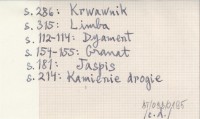 s. 286: Krwawnik
s. 315: Limba
s. 112-114: Dyament
s. 154-155: Granat
s. 181: Jaspis
s. 214: Kamienie drogie